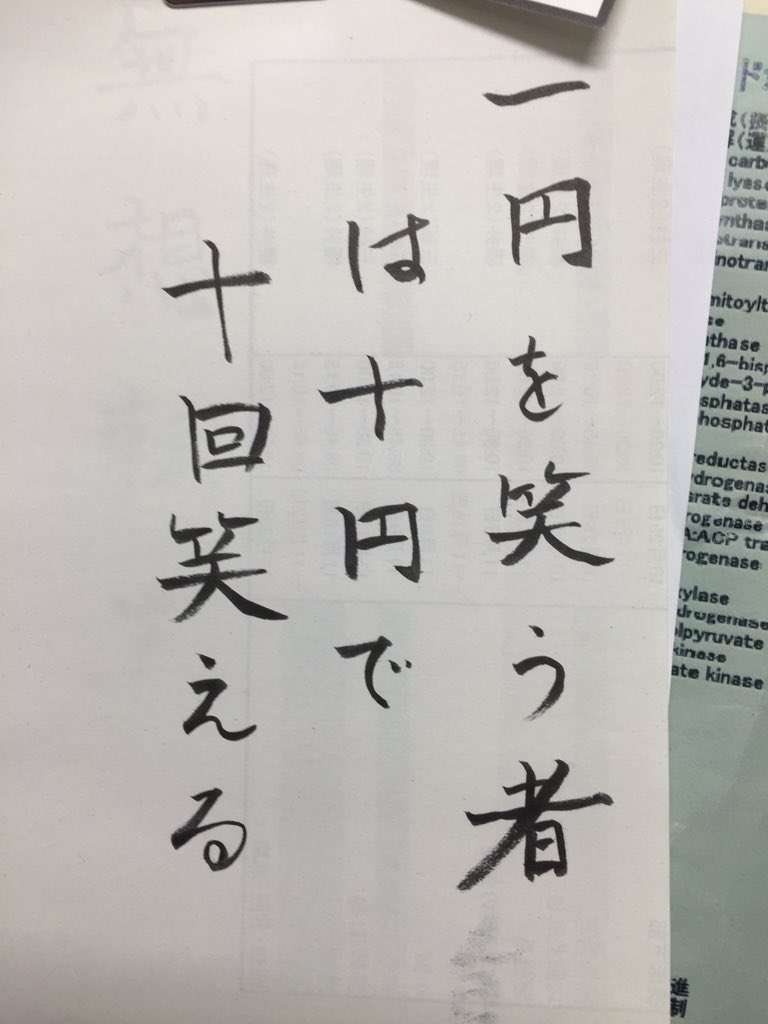 一円を笑う者
は十円で
十回笑える
carb
lyase
prote
ntha
trans
notran
mitoylt
se
thase
1,6-bisp
yde-3-p
sphatas
hosphat
reductas
ydrogena
arate deh
rogenase
A:ACP tra
rogenase
xylase
drogenase
olpyruvate
kinase
ate kinase
進
制